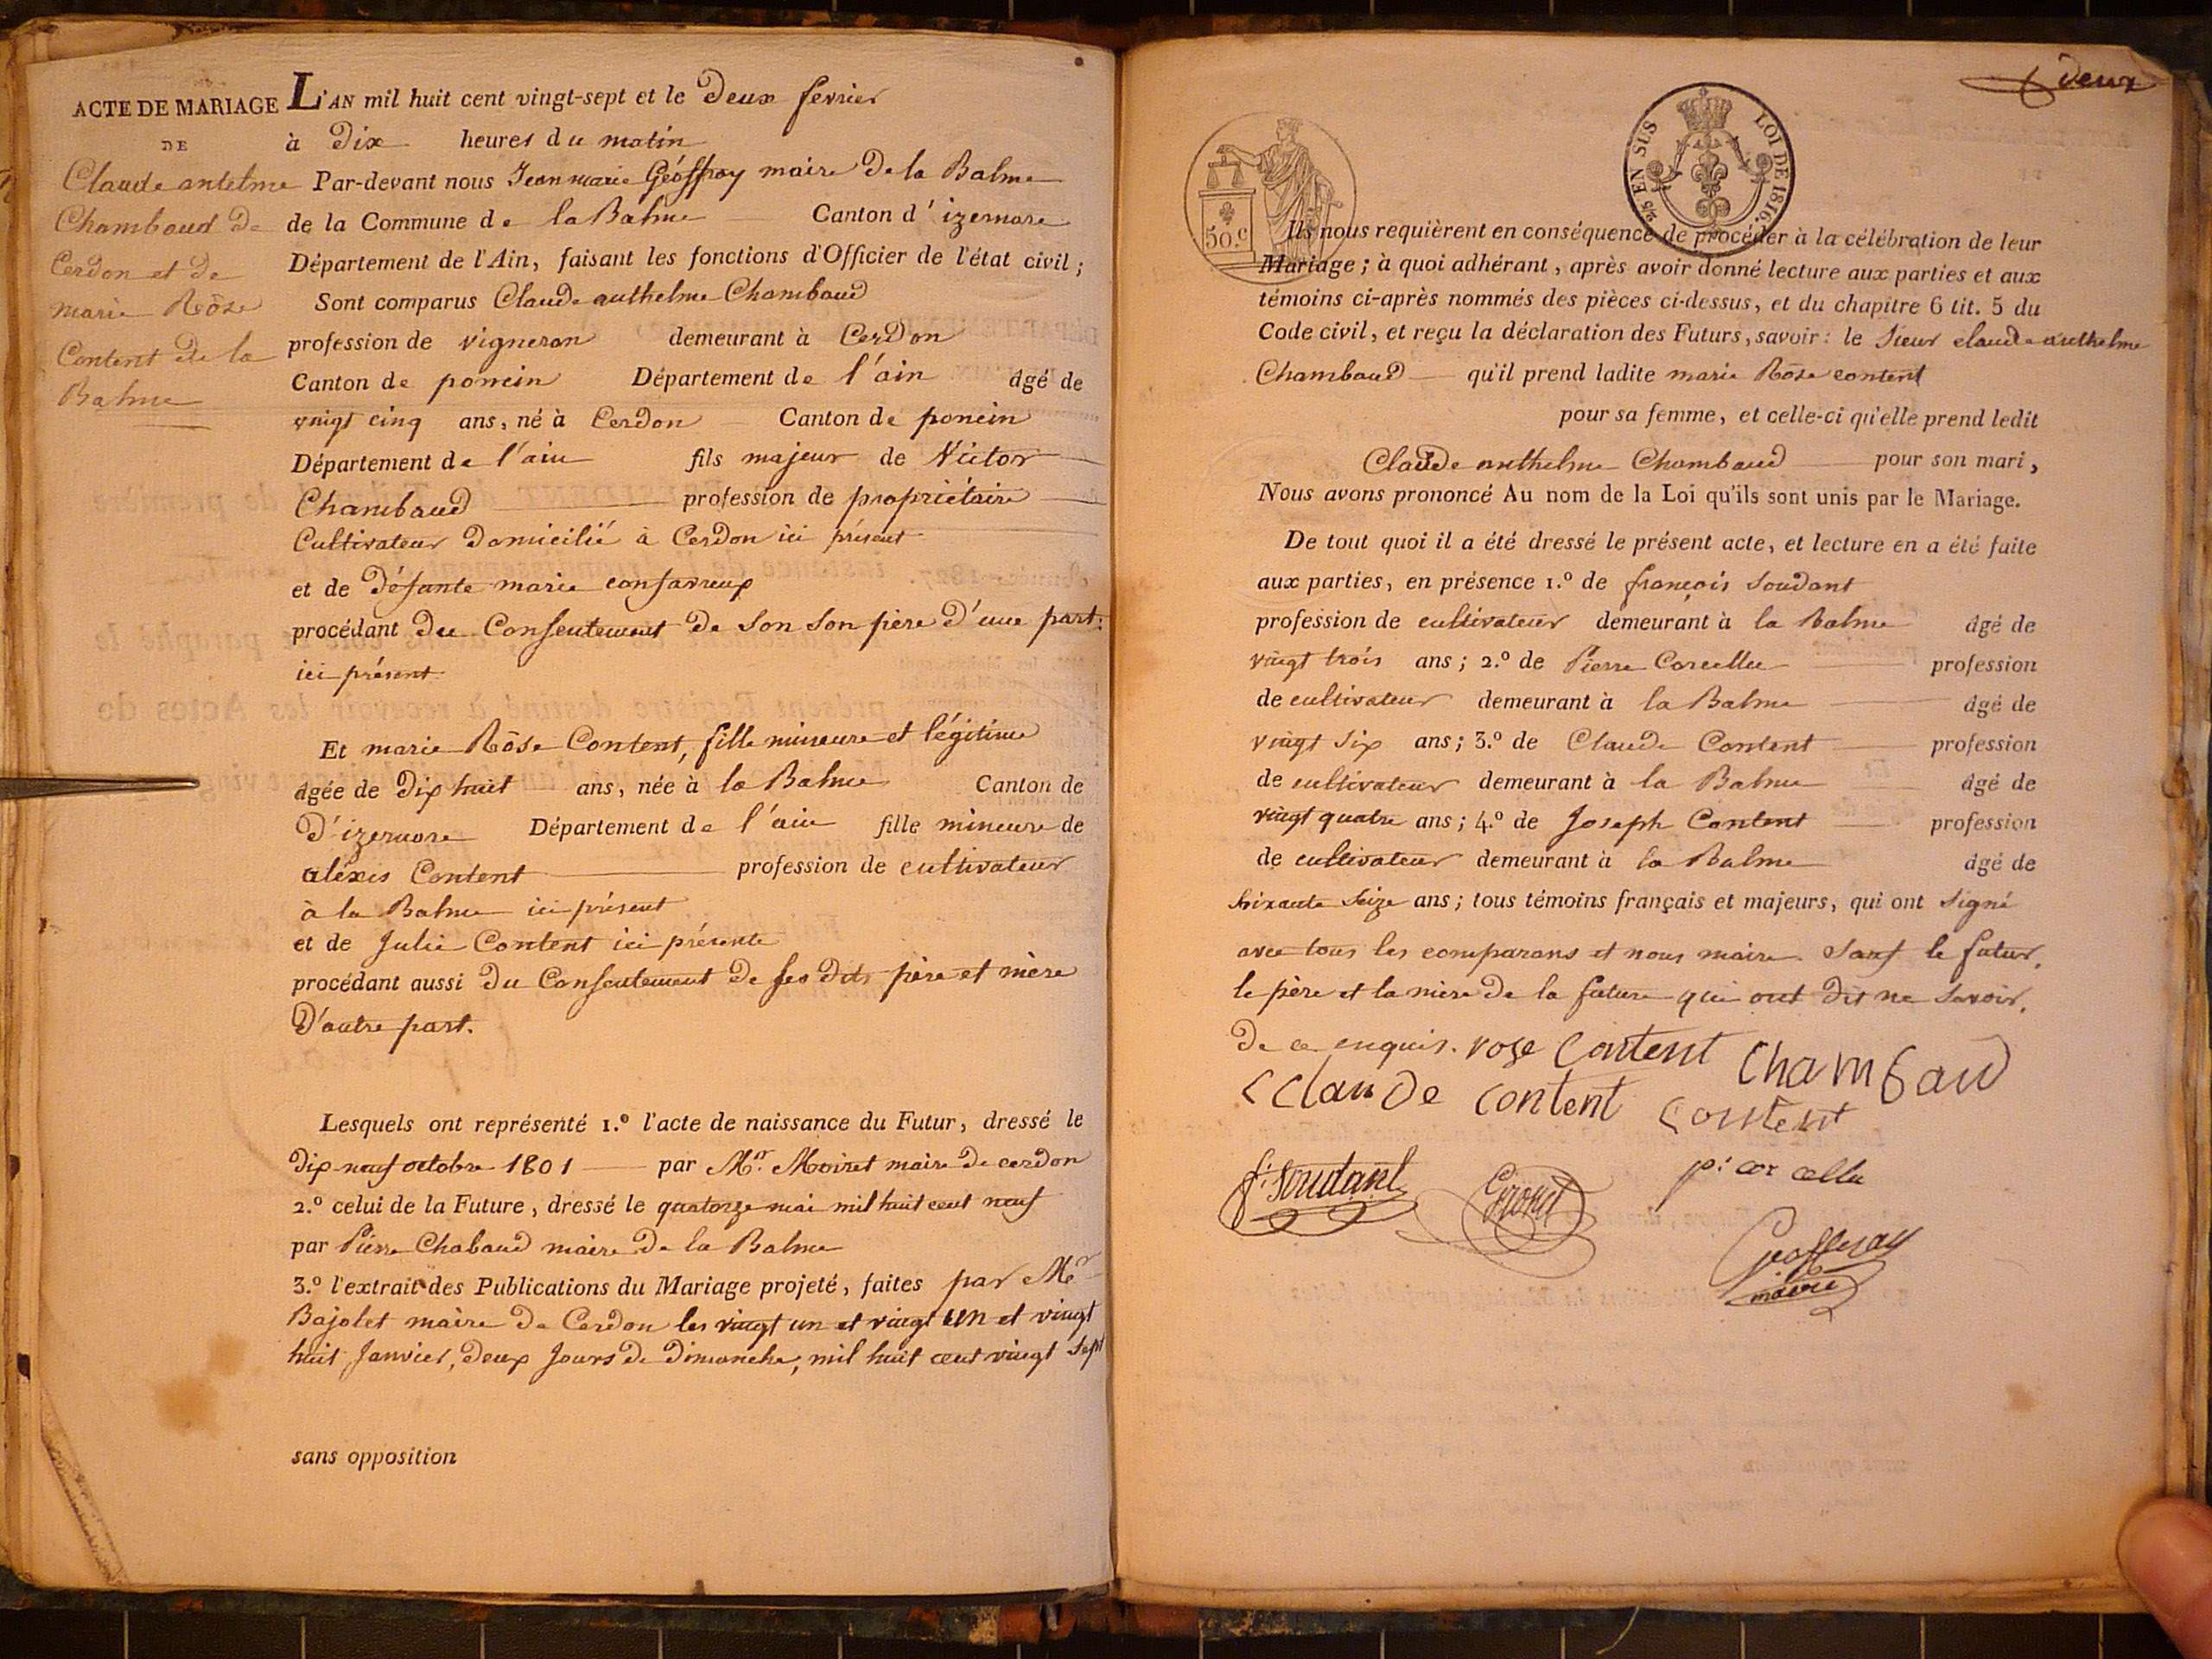 ACTE DE MARIAGE
DE
Claude antelme
Chambaud de
Cerdon et de
marie Rôse
Content de la
Balme
L'AN mil huit cent vingt-sept et le Deux fevrier
à Dix heures du matin
Par-devant nous Jean marie Géoffray maire De la Balme
de la Commune de la Balme Canton d' izernore
Département de l'Ain, faisant les fonctions d'Officier de l'état civil;
Sont comparus Claude anthelme Chambaud
profession de vigneron demeurant à Cerdon
Canton de poncin Département de l'ain âgé de
vingt cinq ans, né à Cerdon Canton de poncin
Département de l'ain fils majeur de Victor
Chambaud profession de propriétaire
Cultivateur Domicilié à Cerdon ici présent
et de Défunte marie
procédant Du Consentement De Son Son père D'une part.
ici présent
Et marie Rôse Content, fille mineure et légitime
âgée de Dix huit ans, née à la Balme Canton de
D'izernore Département de l'ain fille mineure de
aléxis Content profession de cultivateur
à la Balme ici présent
et de Julie Content ici présente
procédant aussi Du Consentement De ses Dits père et mère
D'autre part.
Lesquels ont représenté 1.º l'acte de naissance du Futur, dressé le
Dix neuf octobre 1801 par Mr. Moiret maire De cerdon
2.º celui de la Future, dressé le quatorze mai mil huit cent neuf
par Pierre Chabaud maire De la Balme
3.º l'extrait des Publications du Mariage projeté, faites par Mr
Bajolet maire De Cerdon les vingt un et vingt un et vingt
huit Janvier, Deux Jours De Dimanche, mil huit cent vingt Sept
sans opposition
deux
50.c
2/5 EN SUS
LOI DE 1816.
Ils nous requièrent en conséquence de procéder à la célébration de leur
Mariage; à quoi adhérant, après avoir donné lecture aux parties et aux
témoins ci-après nommés des pièces ci-dessus, et du chapitre 6 tit. 5 du
Code civil, et reçu la déclaration des Futurs, savoir: le Sieur claude anthelme
Chambaud qu'il prend ladite marie Rôse content
pour sa femme, et celle-ci qu'elle prend ledit
Claude anthelme Chambaud pour son mari,
Nous avons prononcé Au nom de la Loi qu'ils sont unis par le Mariage.
De tout quoi il a été dressé le présent acte, et lecture en a été faite
aux parties, en présence 1.º de françois Soudant
profession de cultivateur demeurant à la Balme âgé de
vingt trois ans; 2.º de Pierre Corcellu profession
de cultivateur demeurant à la Balme âgé de
vingt Six ans; 3.º de Claude Content profession
de cultivateur demeurant à la Balme âgé de
vingt quatre ans; 4.º de Joseph Content profession
de cultivateur demeurant à la Balme âgé de
Soixante Seize ans; tous témoins français et majeurs, qui ont Signé
avec tous les comparans et nous maire. Sauf le futur,
le père et la mère De la future qui ont Dit ne Savoir,
De ce enquis. rose Content Chambaud
Claude content content
f: soudant p: corcellu
Geoffray
maire